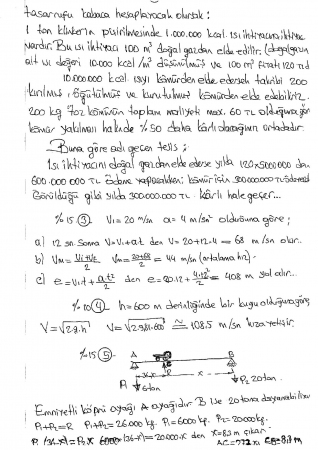 tasarrufu kabaca hesaplayacak olursak :
1 ton klinkerin pişirilmesinde 1.000.000 kcal. ısı ihtiyacına ihtiyaç
vardır. Bu ısı ihtiyacı 100 m³ doğal gazdan elde edilir. (doğalgazın
alt ısı değeri 10.000 kcal/m³ düşünülmüş ve 100 m³ fiyatı 120 TL dir
10.000.000 kcal. ısıyı kömürden elde edersek takribi 200
kırılmış, öğütülmüş ve kurutulmuş kömürden elde edebiliriz.
200 kg toz kömürün toplam maliyeti max. 60 TL olduğuna göre
kömür yakılması halinde % 50 daha kârlı olacağının ortadadır.
Buna göre adı geçen tesis ;
Isı ihtiyacını doğal gazdan elde ederse yılda 120x5000000 den
600.000.000 TL ödeme yaparken kömür için 300.000.000 TL ödemesi
Görüldüğü gibi yılda 300.000.000 TL. kârlı hale geçer...
%15 (3) V₁ = 20 m/sn a = 4 m/sn² olduğuna göre ;
a) 12 sn. sonra V=V₁+a.t den V = 20+12.4 = 68 m/sn olur.
b) Vm = V₁+V₂/2 Vm = 20+68/2 = 44 m/sn (ortalama hız)
c) e = V₁.t + a.t²/2 den e = 20.12 + 4.12²/2 = 408 m yol alır...
%10 (4) h = 600 m derinliğinde bir kuyu olduğuna göre
V = √2.g.h V = √2.9,81.600 ≅ 108,5 m/sn hıza yetişir.
%15 (5) A B
R x
P₁ 6 ton P₂ 20 ton.
Emniyetli köprü ayağı A ayağıdır B ise 20 tona dayanabilir
P₁+P₂=R P₁+P₂= 26.000 kg. P₁= 6000 kg. P₂= 20000 kg.